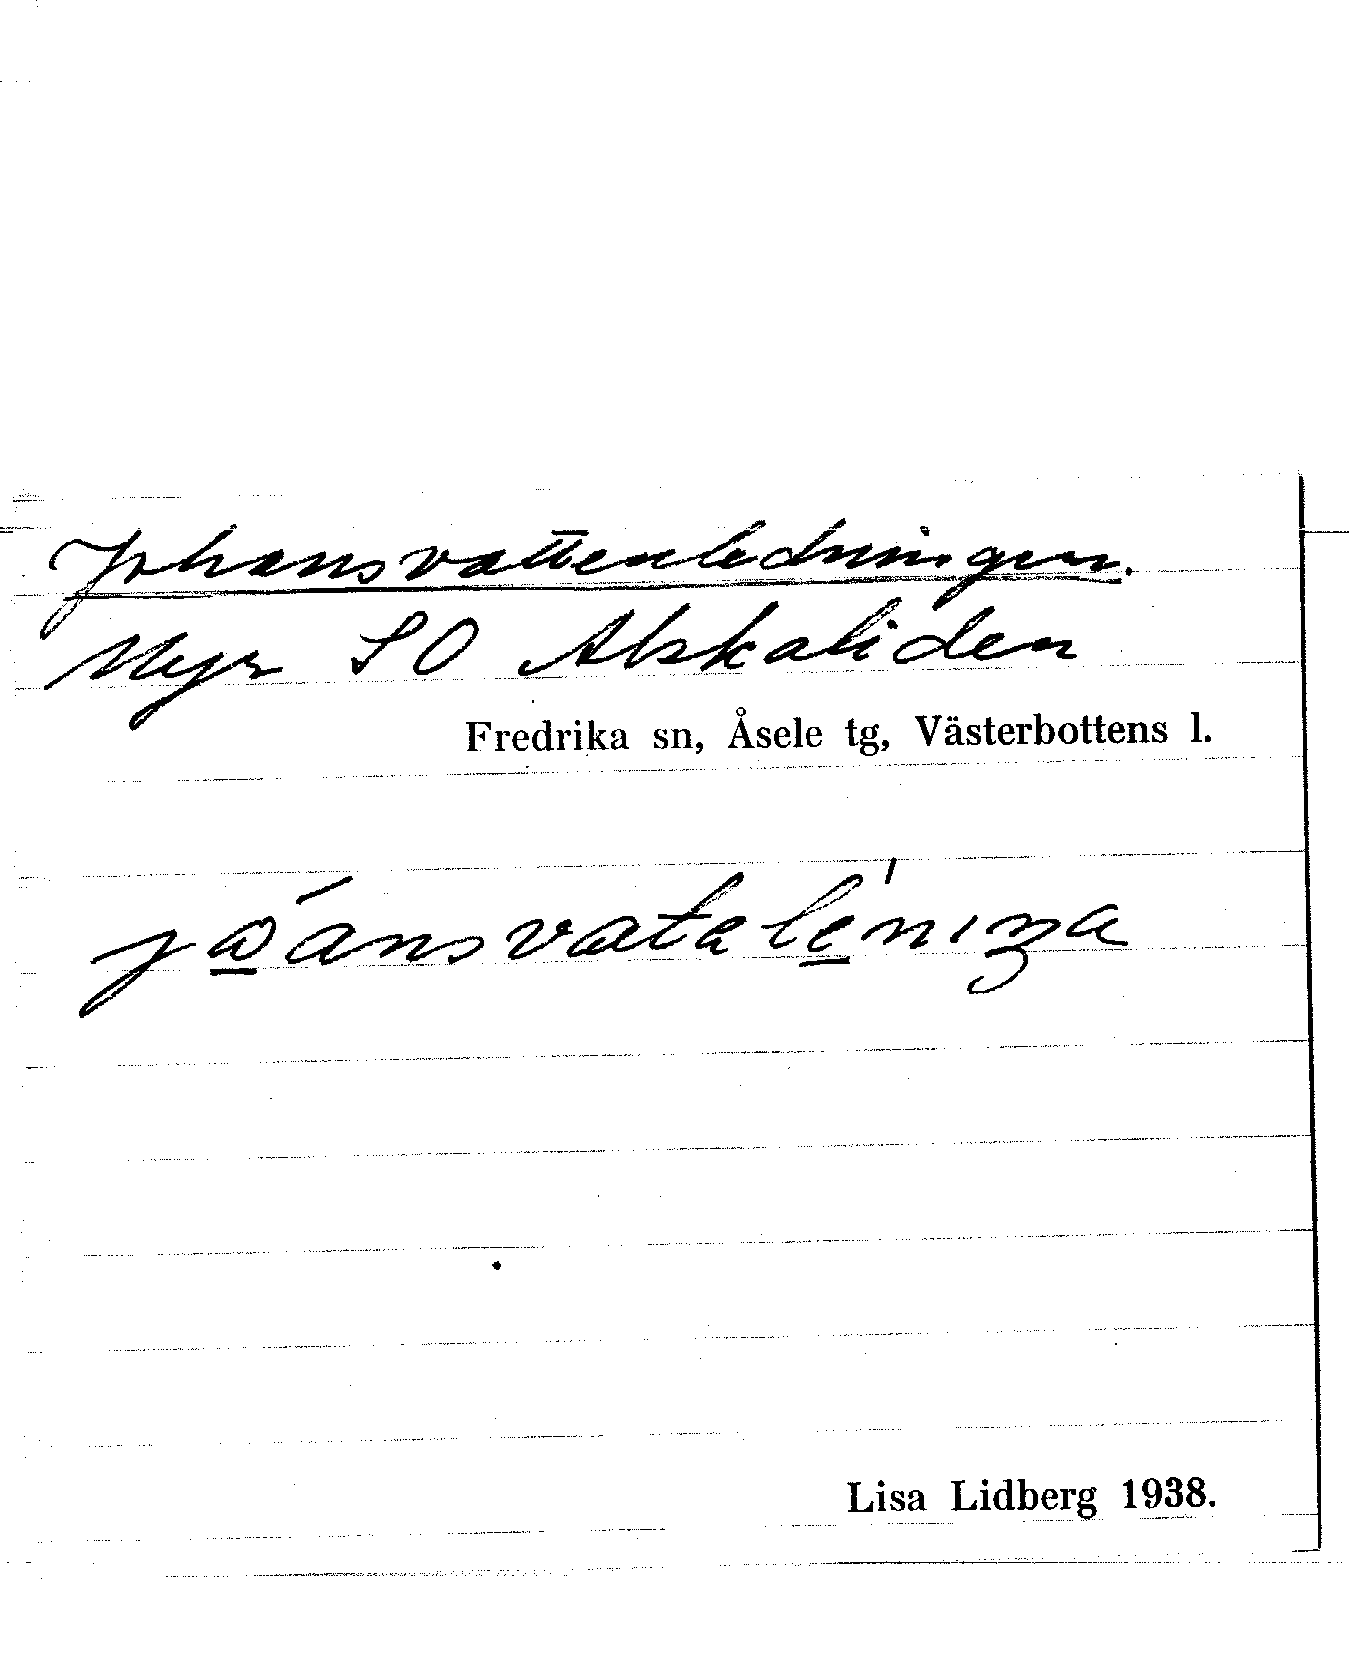 Johansvattenledningen.
Myr SO Alskaliden
Fredrika sn, Åsele tg, Västerbottens l.
Lisa Lidberg 1938.